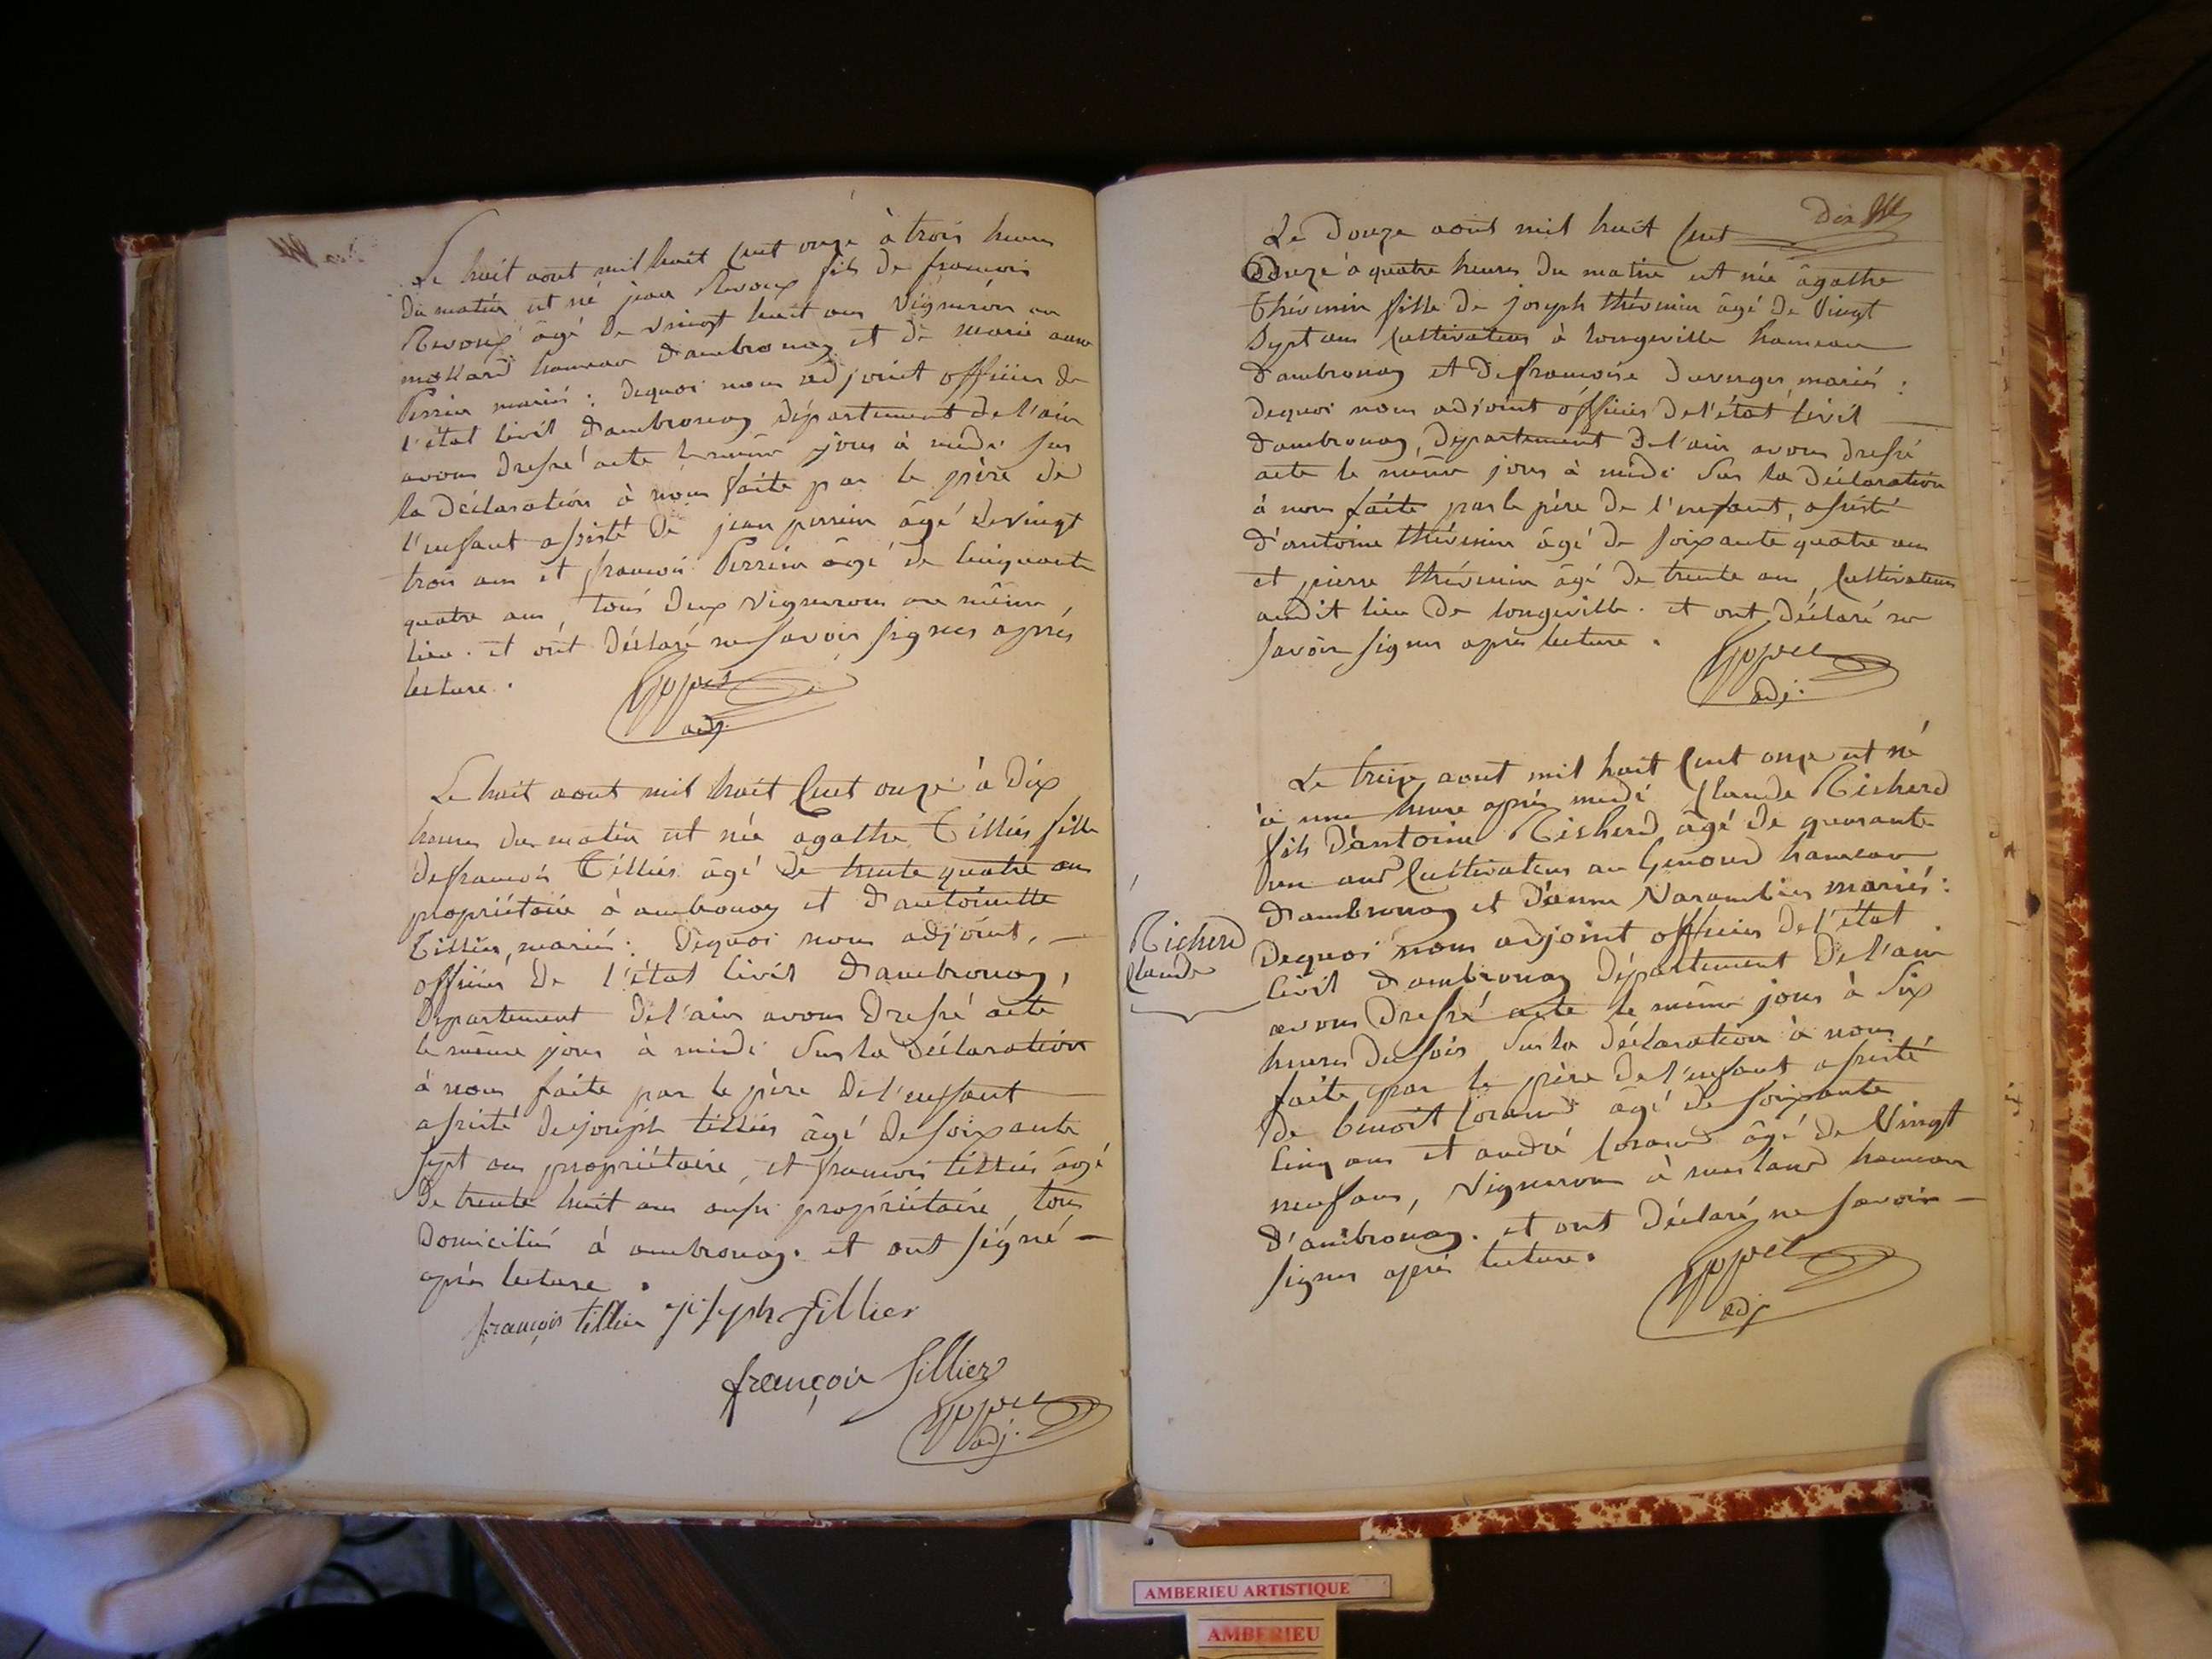 Le huit aout mil huit Cent onze à trois heures
du matin est né jean Revoux fils de francois
Revoux âgé de vingt huit ans vigneron au
mollard hameau d'ambronay et de marie anne
Perrin mariés : dequoi nous adjoint officier de
l'état Civil d'ambronay département de l'ain
avons dressé acte le même jour à midi sur
la déclaration à nous faite par le père de
l'enfant assisté de jean perrin âgé de vingt
trois ans et francois Perrin âgé de Cinquante
quatre ans tous deux vignerons au même
lieu . et ont déclaré ne savoir signer après
lecture .
adj.
Le huit aout mil huit Cent onze à dix
heures du matin est née agathe Tillier fille
de francois Tillier âgé de trente quatre ans
propriétaire à ambronay et d'antoinette
Tillier, mariés : Dequoi nous adjoint, —
officier de l'état Civil d'ambronay,
Département de l'ain avons dressé acte
le même jour à midi sur la déclaration
à nous faite par le père de l'enfant —
assisté de joseph tillier âgé de soixante
sept ans propriétaire, et francois tillier âgé
de trente huit ans aussi propriétaire, tous
domiciliés à ambronay. et ont signé —
après lecture .
françois tillier joseph tillier
françois tillier
adj.
Dix
Le Douze aout mil huit Cent
Onze à quatre heures du matin est née âgathe
Thévenin fille de joseph thévenin âgé de Vingt
Sept ans Cultivateur à longeville hameau
d'ambronay et de francoise duverger mariés :
dequoi nous adjoint officier de l'état Civil —
d'ambronay, département de l'ain avons dressé
acte le même jour à midi sur la déclaration
à nous faite par le père de l'enfant, assisté
d'antoine thévenin âgé de soixante quatre ans
et pierre thévenin âgé de trente ans, Cultivateurs
audit lieu de longeville . et ont déclaré ne
savoir signer après lecture .
adj.
Le treize aout mil huit Cent onze est né
à une heure après midi Claude Richerd
fils d'antoine Richerd âgé de quarante
un ans Cultivateur au Genoud hameau
d'ambronay et d'anne Varambier mariés :
Dequoi nous adjoint officier de l'état
Civil d'ambronay Département de l'ain
avons dressé acte le même jour à Six
heures du soir sur la déclaration à nous
faite par le père de l'enfant assisté
de benoit Corand âgé de soixante
Cinq ans et andré Corand âgé de Vingt
neuf ans, Vignerons à hameau
d'ambronay . et ont déclaré ne savoir —
signer après lecture.
adj
Richerd
Claude
AMBERIEU ARTISTIQUE
AMBERIEU